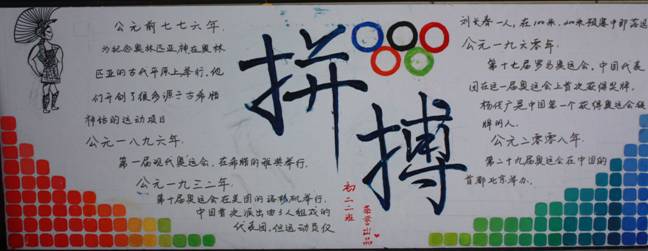 公元前七七六年.
为纪念奥林匹亚神在奥林
匹亚的古代平原上举行, 他
们开创了很多源于古希腊
神话的运动项目
公元一八九六年.
第一届现代奥运会, 在希腊的雅典举行,
公元一九三二年.
第十届奥运会在美国的洛杉矶举行,
中国首次派出由3人组成的
代表团, 但运动员仅
拼搏
初二二班
刘长春一人, 在100米, 200米预赛中都落选
公元一九六0年.
第十七届罗马奥运会, 中国代表
团在这一届奥运会上首次获得奖牌,
杨传广是中国第一个获得奥运会银
牌的人.
公元二零零八年.
第二十九届奥运会在中国的
首都北京举办.